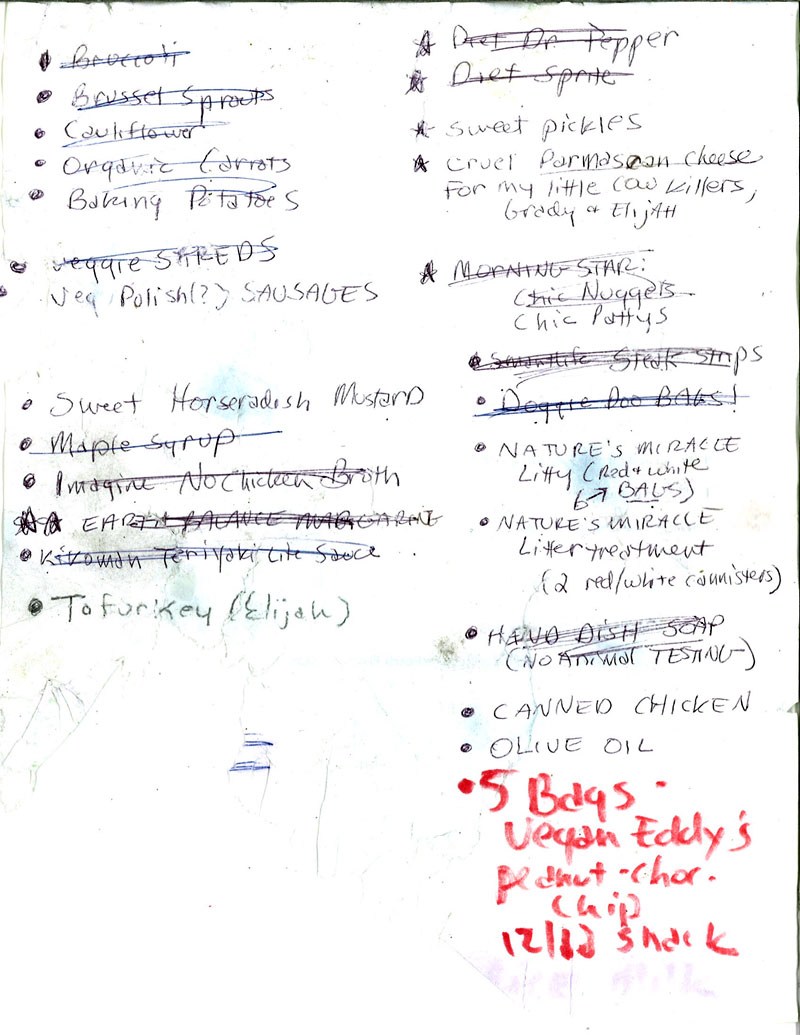 Broccoli
Brussel Sprouts
Cauliflower
Organic Carrots
Baking Potatoes
Veggie SHREDS
Veg Polish(?) SAUSAGES
Sweet Horseradish Mustard
Maple Syrup
Imagine No Chicken Broth
EARTH BALANCE MARGARINE
Kikoman Teriyaki Lite Sauce
Tofurkey (Elijah)
Diet Dr. Pepper
Diet Sprite
Sweet pickles
cruel Parmascan cheese
For my little cow killers,
Grady & ElijAH
MORNING STAR:
Chic Nuggets
Chic Pattys
Smartlife Steak Strips
Doggie Doo BAGS!
NATURE'S MIRACLE
Litty (Red & white
6 → BAGS)
NATURE'S MIRACLE
Litter treatment
(2 red/white cannisters)
HAND DISH SOAP
(NO Animal TESTING)
CANNED CHICKEN
OLIVE OIL
5 Bags -
Vegan Eddy's
peanut-chor.
Chip
12/12 snack